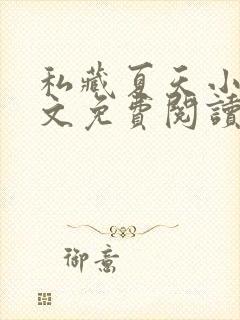 私藏夏天小
文免費閱讀
御意